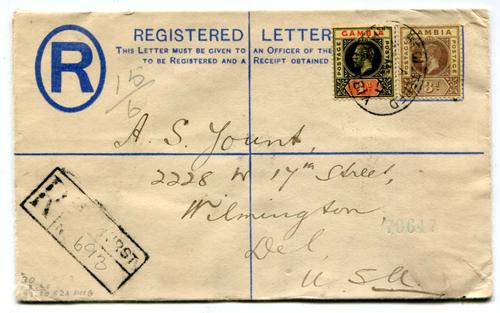 REGISTERED LETTER
THIS LETTER MUST BE GIVEN TO AN OFFICER OF THE
TO BE REGISTERED AND A RECEIPT OBTAINED
R
GAMBIA
POSTAGE
GAMBIA
POSTAGE
3d
A. S. Yount,
2228 W 17th Street,
Wilmington
70647
Del
U.S.A.
R
No. 693